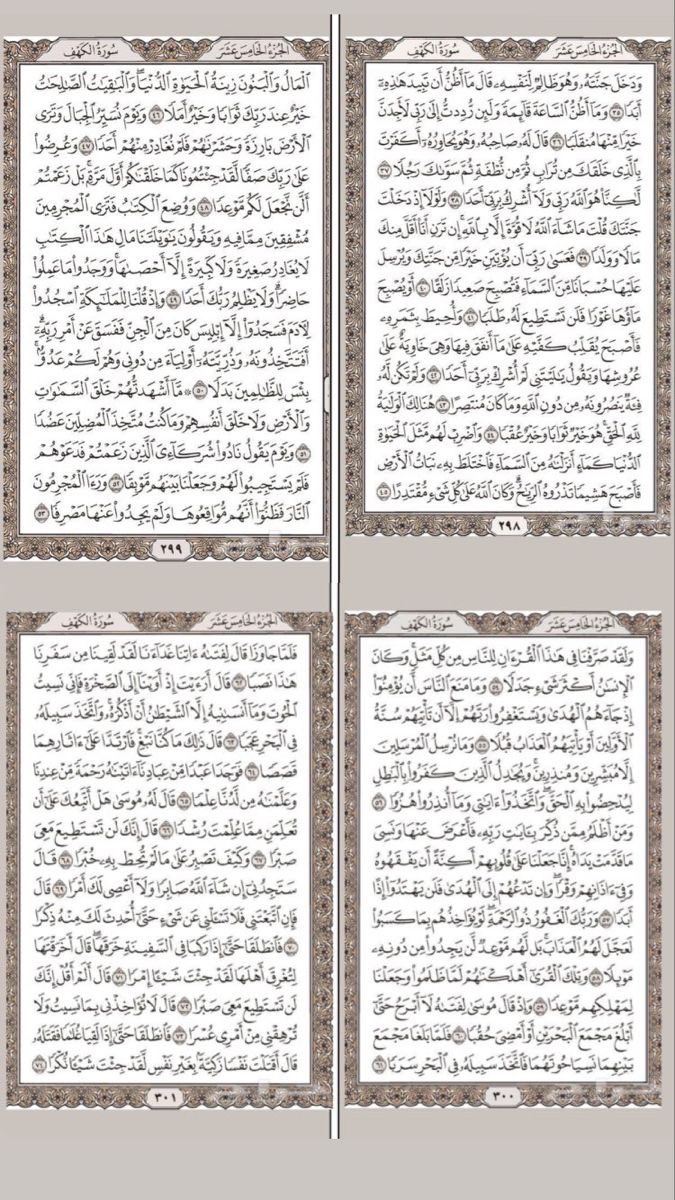 الجُزْءُ الخَامِسَ عَشَرَ
سُورَةُ الكَهْفِ
وَدَخَلَ جَنَّتَهُۥ وَهُوَ ظَالِمٌ لِّنَفْسِهِۦ قَالَ مَآ أَظُنُّ أَن تَبِيدَ هَٰذِهِۦٓ
أَبَدًا ٣٥ وَمَآ أَظُنُّ ٱلسَّاعَةَ قَآئِمَةً وَلَئِن رُّدِدتُّ إِلَىٰ رَبِّي لَأَجِدَنَّ
خَيْرًا مِّنْهَا مُنقَلَبًا ٣٦ قَالَ لَهُۥ صَاحِبُهُۥ وَهُوَ يُحَاوِرُهُۥٓ أَكَفَرْتَ
بِٱلَّذِي خَلَقَكَ مِن تُرَابٍ ثُمَّ مِن نُّطْفَةٍ ثُمَّ سَوَّىٰكَ رَجُلًا ٣٧
لَّٰكِنَّا۠ هُوَ ٱللَّهُ رَبِّي وَلَآ أُشْرِكُ بِرَبِّيٓ أَحَدًا ٣٨ وَلَوْلَآ إِذْ دَخَلْتَ
جَنَّتَكَ قُلْتَ مَا شَآءَ ٱللَّهُ لَا قُوَّةَ إِلَّا بِٱللَّهِۚ إِن تَرَنِ أَنَا۠ أَقَلَّ مِنكَ
مَالًا وَوَلَدًا ٣٩ فَعَسَىٰ رَبِّيٓ أَن يُؤْتِيَنِ خَيْرًا مِّن جَنَّتِكَ وَيُرْسِلَ
عَلَيْهَا حُسْبَانًا مِّنَ ٱلسَّمَآءِ فَتُصْبِحَ صَعِيدًا زَلَقًا ٤٠ أَوْ يُصْبِحَ
مَآؤُهَا غَوْرًا فَلَن تَسْتَطِيعَ لَهُۥ طَلَبًا ٤١ وَأُحِيطَ بِثَمَرِهِۦ
فَأَصْبَحَ يُقَلِّبُ كَفَّيْهِ عَلَىٰ مَآ أَنفَقَ فِيهَا وَهِيَ خَاوِيَةٌ عَلَىٰ
عُرُوشِهَا وَيَقُولُ يَٰلَيْتَنِي لَمْ أُشْرِكْ بِرَبِّيٓ أَحَدًا ٤٢ وَلَمْ تَكُن لَّهُۥ
فِئَةٌ يَنصُرُونَهُۥ مِن دُونِ ٱللَّهِ وَمَا كَانَ مُنتَصِرًا ٤٣ هُنَالِكَ ٱلْوَلَٰيَةُ
لِلَّهِ ٱلْحَقِّۚ هُوَ خَيْرٌ ثَوَابًا وَخَيْرٌ عُقْبًا ٤٤ وَٱضْرِبْ لَهُم مَّثَلَ ٱلْحَيَوٰةِ
ٱلدُّنْيَا كَمَآءٍ أَنزَلْنَٰهُ مِنَ ٱلسَّمَآءِ فَٱخْتَلَطَ بِهِۦ نَبَاتُ ٱلْأَرْضِ
فَأَصْبَحَ هَشِيمًا تَذْرُوهُ ٱلرِّيَٰحُۗ وَكَانَ ٱللَّهُ عَلَىٰ كُلِّ شَيْءٍ مُّقْتَدِرًا ٤٥
٢٩٨
الجُزْءُ الخَامِسَ عَشَرَ
سُورَةُ الكَهْفِ
ٱلْمَالُ وَٱلْبَنُونَ زِينَةُ ٱلْحَيَوٰةِ ٱلدُّنْيَاۖ وَٱلْبَٰقِيَٰتُ ٱلصَّٰلِحَٰتُ
خَيْرٌ عِندَ رَبِّكَ ثَوَابًا وَخَيْرٌ أَمَلًا ٤٦ وَيَوْمَ نُسَيِّرُ ٱلْجِبَالَ وَتَرَى
ٱلْأَرْضَ بَارِزَةً وَحَشَرْنَٰهُمْ فَلَمْ نُغَادِرْ مِنْهُمْ أَحَدًا ٤٧ وَعُرِضُوا۟
عَلَىٰ رَبِّكَ صَفًّا لَّقَدْ جِئْتُمُونَا كَمَا خَلَقْنَٰكُمْ أَوَّلَ مَرَّةٍۭۚ بَلْ زَعَمْتُمْ
أَلَّن نَّجْعَلَ لَكُم مَّوْعِدًا ٤٨ وَوُضِعَ ٱلْكِتَٰبُ فَتَرَى ٱلْمُجْرِمِينَ
مُشْفِقِينَ مِمَّا فِيهِ وَيَقُولُونَ يَٰوَيْلَتَنَا مَالِ هَٰذَا ٱلْكِتَٰبِ
لَا يُغَادِرُ صَغِيرَةً وَلَا كَبِيرَةً إِلَّآ أَحْصَىٰهَاۚ وَوَجَدُوا۟ مَا عَمِلُوا۟
حَاضِرًاۗ وَلَا يَظْلِمُ رَبُّكَ أَحَدًا ٤٩ وَإِذْ قُلْنَا لِلْمَلَٰٓئِكَةِ ٱسْجُدُوا۟
لِأٓدَمَ فَسَجَدُوٓا۟ إِلَّآ إِبْلِيسَ كَانَ مِنَ ٱلْجِنِّ فَفَسَقَ عَنْ أَمْرِ رَبِّهِۦٓۗ
أَفَتَتَّخِذُونَهُۥ وَذُرِّيَّتَهُۥٓ أَوْلِيَآءَ مِن دُونِي وَهُمْ لَكُمْ عَدُوٌّۢۚ
بِئْسَ لِلظَّٰلِمِينَ بَدَلًا ٥٠ ۞ مَّآ أَشْهَدتُّهُمْ خَلْقَ ٱلسَّمَٰوَٰتِ
وَٱلْأَرْضِ وَلَا خَلْقَ أَنفُسِهِمْ وَمَا كُنتُ مُتَّخِذَ ٱلْمُضِلِّينَ عَضُدًا
٥١ وَيَوْمَ يَقُولُ نَادُوا۟ شُرَكَآءِيَ ٱلَّذِينَ زَعَمْتُمْ فَدَعَوْهُمْ
فَلَمْ يَسْتَجِيبُوا۟ لَهُمْ وَجَعَلْنَا بَيْنَهُم مَّوْبِقًا ٥٢ وَرَءَا ٱلْمُجْرِمُونَ
ٱلنَّارَ فَظَنُّوٓا۟ أَنَّهُم مُّوَاقِعُوهَا وَلَمْ يَجِدُوا۟ عَنْهَا مَصْرِفًا ٥٣
٢٩٩
الجُزْءُ الخَامِسَ عَشَرَ
سُورَةُ الكَهْفِ
وَلَقَدْ صَرَّفْنَا فِي هَٰذَا ٱلْقُرْءَانِ لِلنَّاسِ مِن كُلِّ مَثَلٍۚ وَكَانَ
ٱلْإِنسَٰنُ أَكْثَرَ شَيْءٍ جَدَلًا ٥٤ وَمَا مَنَعَ ٱلنَّاسَ أَن يُؤْمِنُوٓا۟
إِذْ جَآءَهُمُ ٱلْهُدَىٰ وَيَسْتَغْفِرُوا۟ رَبَّهُمْ إِلَّآ أَن تَأْتِيَهُمْ سُنَّةُ
ٱلْأَوَّلِينَ أَوْ يَأْتِيَهُمُ ٱلْعَذَابُ قُبُلًا ٥٥ وَمَا نُرْسِلُ ٱلْمُرْسَلِينَ
إِلَّا مُبَشِّرِينَ وَمُنذِرِينَۚ وَيُجَٰدِلُ ٱلَّذِينَ كَفَرُوا۟ بِٱلْبَٰطِلِ
لِيُدْحِضُوا۟ بِهِ ٱلْحَقَّۖ وَٱتَّخَذُوٓا۟ ءَايَٰتِي وَمَآ أُنذِرُوا۟ هُزُوًا ٥٦
وَمَنْ أَظْلَمُ مِمَّن ذُكِّرَ بِـَٔايَٰتِ رَبِّهِۦ فَأَعْرَضَ عَنْهَا وَنَسِيَ
مَا قَدَّمَتْ يَدَاهُۚ إِنَّا جَعَلْنَا عَلَىٰ قُلُوبِهِمْ أَكِنَّةً أَن يَفْقَهُوهُ
وَفِيٓ ءَاذَانِهِمْ وَقْرًاۖ وَإِن تَدْعُهُمْ إِلَى ٱلْهُدَىٰ فَلَن يَهْتَدُوٓا۟ إِذًا
أَبَدًا ٥٧ وَرَبُّكَ ٱلْغَفُورُ ذُو ٱلرَّحْمَةِۖ لَوْ يُؤَاخِذُهُم بِمَا كَسَبُوا۟
لَعَجَّلَ لَهُمُ ٱلْعَذَابَۚ بَل لَّهُم مَّوْعِدٌ لَّن يَجِدُوا۟ مِن دُونِهِۦ
مَوْئِلًا ٥٨ وَتِلْكَ ٱلْقُرَىٰٓ أَهْلَكْنَٰهُمْ لَمَّا ظَلَمُوا۟ وَجَعَلْنَا
لِمَهْلِكِهِم مَّوْعِدًا ٥٩ وَإِذْ قَالَ مُوسَىٰ لِفَتَىٰهُ لَآ أَبْرَحُ حَتَّىٰٓ
أَبْلُغَ مَجْمَعَ ٱلْبَحْرَيْنِ أَوْ أَمْضِيَ حُقُبًا ٦٠ فَلَمَّا بَلَغَا مَجْمَعَ
بَيْنِهِمَا نَسِيَا حُوتَهُمَا فَٱتَّخَذَ سَبِيلَهُۥ فِي ٱلْبَحْرِ سَرَبًا ٦١
٣٠٠
الجُزْءُ الخَامِسَ عَشَرَ
سُورَةُ الكَهْفِ
فَلَمَّا جَاوَزَا قَالَ لِفَتَىٰهُ ءَاتِنَا غَدَآءَنَا لَقَدْ لَقِينَا مِن سَفَرِنَا
هَٰذَا نَصَبًا ٦٢ قَالَ أَرَءَيْتَ إِذْ أَوَيْنَآ إِلَى ٱلصَّخْرَةِ فَإِنِّي نَسِيتُ
ٱلْحُوتَ وَمَآ أَنسَىٰنِيهُ إِلَّا ٱلشَّيْطَٰنُ أَنْ أَذْكُرَهُۥۚ وَٱتَّخَذَ سَبِيلَهُۥ
فِي ٱلْبَحْرِ عَجَبًا ٦٣ قَالَ ذَٰلِكَ مَا كُنَّا نَبْغِۚ فَٱرْتَدَّا عَلَىٰٓ ءَاثَارِهِمَا
قَصَصًا ٦٤ فَوَجَدَا عَبْدًا مِّنْ عِبَادِنَآ ءَاتَيْنَٰهُ رَحْمَةً مِّنْ عِندِنَا
وَعَلَّمْنَٰهُ مِن لَّدُنَّا عِلْمًا ٦٥ قَالَ لَهُۥ مُوسَىٰ هَلْ أَتَّبِعُكَ عَلَىٰٓ أَن
تُعَلِّمَنِ مِمَّا عُلِّمْتَ رُشْدًا ٦٦ قَالَ إِنَّكَ لَن تَسْتَطِيعَ مَعِيَ
صَبْرًا ٦٧ وَكَيْفَ تَصْبِرُ عَلَىٰ مَا لَمْ تُحِطْ بِهِۦ خُبْرًا ٦٨ قَالَ
سَتَجِدُنِيٓ إِن شَآءَ ٱللَّهُ صَابِرًا وَلَآ أَعْصِي لَكَ أَمْرًا ٦٩ قَالَ
فَإِنِ ٱتَّبَعْتَنِي فَلَا تَسْـَٔلْنِي عَن شَيْءٍ حَتَّىٰٓ أُحْدِثَ لَكَ مِنْهُ ذِكْرًا
٧٠ فَٱنطَلَقَا حَتَّىٰٓ إِذَا رَكِبَا فِي ٱلسَّفِينَةِ خَرَقَهَاۖ قَالَ أَخَرَقْتَهَا
لِتُغْرِقَ أَهْلَهَا لَقَدْ جِئْتَ شَيْـًٔا إِمْرًا ٧١ قَالَ أَلَمْ أَقُلْ إِنَّكَ
لَن تَسْتَطِيعَ مَعِيَ صَبْرًا ٧٢ قَالَ لَا تُؤَاخِذْنِي بِمَا نَسِيتُ وَلَا
تُرْهِقْنِي مِنْ أَمْرِي عُسْرًا ٧٣ فَٱنطَلَقَا حَتَّىٰٓ إِذَا لَقِيَا غُلَٰمًا فَقَتَلَهُۥ
قَالَ أَقَتَلْتَ نَفْسًا زَكِيَّةًۢ بِغَيْرِ نَفْسٍ لَّقَدْ جِئْتَ شَيْـًٔا نُّكْرًا ٧٤
٣٠١